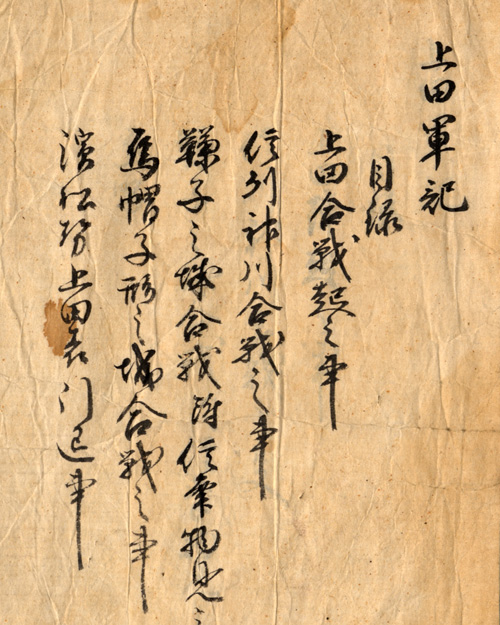 上田軍記
目録
上田合戦起之事
信州神川合戦之事
鞠子之城合戦附信幸物見之
烏帽子形之城合戦之事
濱松勢上田表引退事